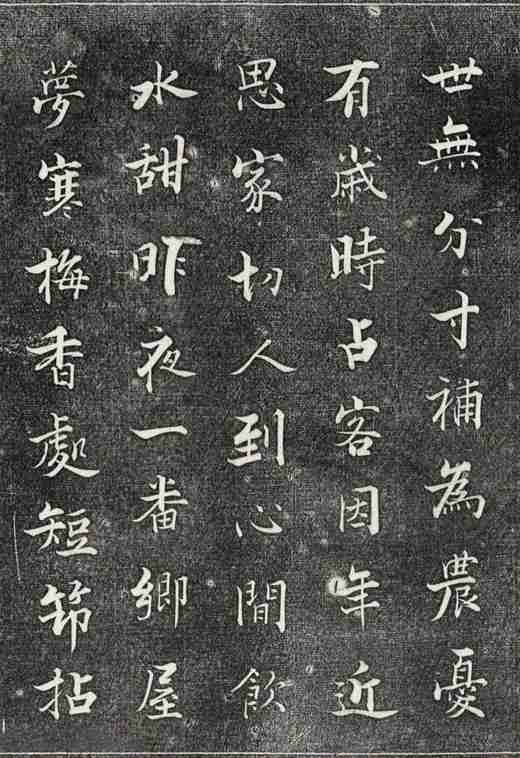 世無分寸補為農憂
有歲時占客因年近
思家切人到心閒飲
水甜昨夜一番鄉屋
夢寒梅香處短筇拈